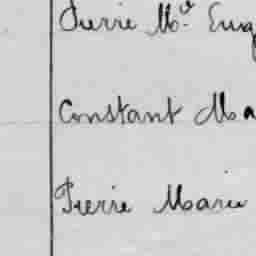 Pierre Mie Eug
Constant Ma
Pierre Marie